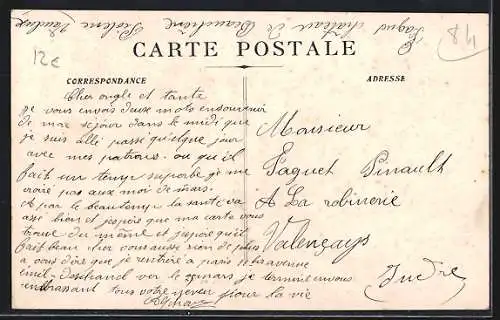 Paquet château de Beauchêne Piolenc Vaucluse
84
12€
CARTE POSTALE
CORRESPONDANCE
ADRESSE
Cher oncle et tante
je vous envois deux mots en souvenir
de mon séjour dans le midi que
je suis allé passé quelque jour
avec mes patrons. ou qu'il
fait un temps superbe je me
croiré pas aux moi de mars.
A par le beau temps la santé va
assé bien et jespois que ma carte vous
trouve de même et jespois qu'il
fait beau cher vous aussi rien de plus
a vous dire que je rentiré a paris
emil-Deschanel ver le mars je termine en vous
embrassant tous votre neveu pour la vie
Monsieur
Paquet Pinault
A La robinerie
Valençays
Indre